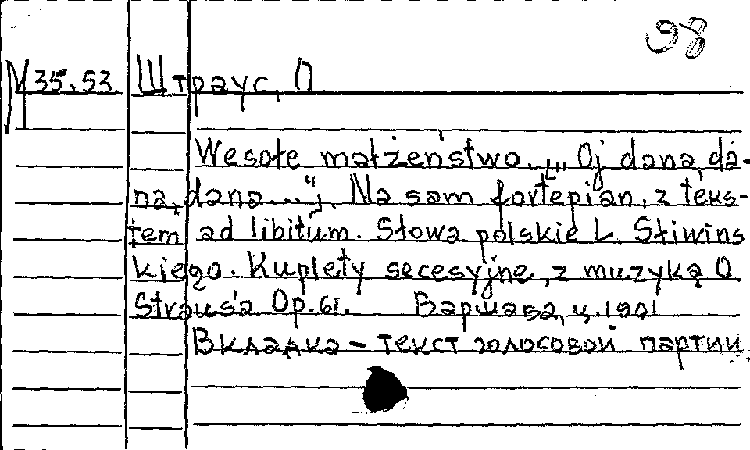 98
M 35.53 Штраус, О
Wesołe małżeństwo. „Oj dana, da-
na, dana..."; Na sam fortepian, z teks-
tem ad libitum. Słowa polskie L. Śliwins
kiego. Kuplety secesyjne, z muzyką O.
Straus'a Op. 61. Варшава, ц. 1901
Вкладка – текст голосовой партии